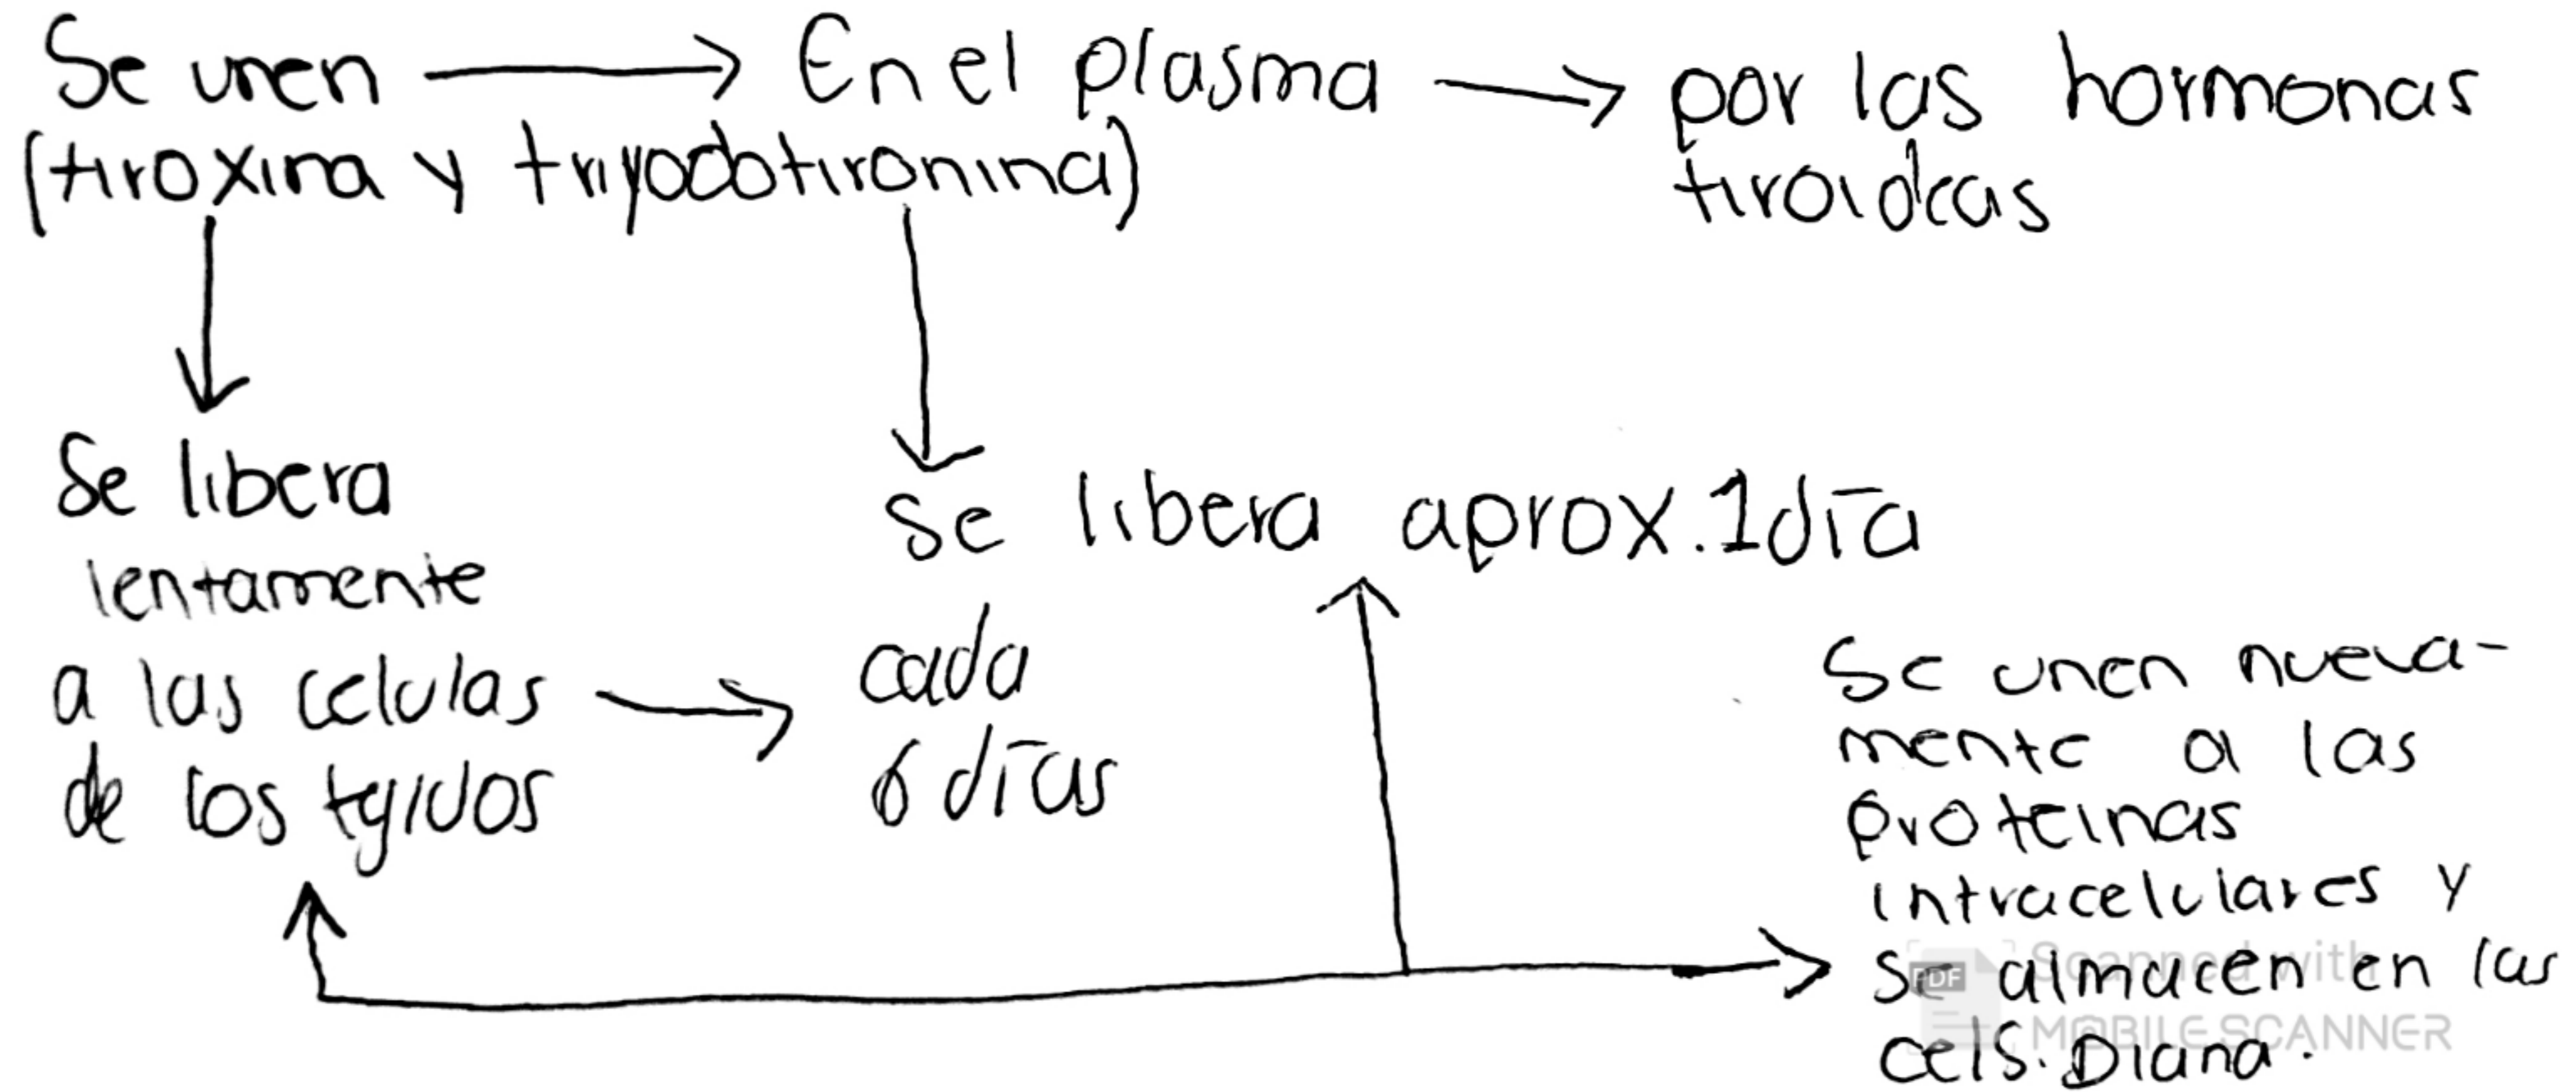 Se unen → En el plasma → por las hormonas
(tiroxina y triyodotironina) tiroideas
Se libera
lentamente
a las celulas → cada
de los tejidos 6 días
Se libera aprox. 1 día
Se unen nueva-
mente a las
proteinas
intracelulares y
se almacen en las
cels. Diana.
Scanned with
MOBILE SCANNER
PDF